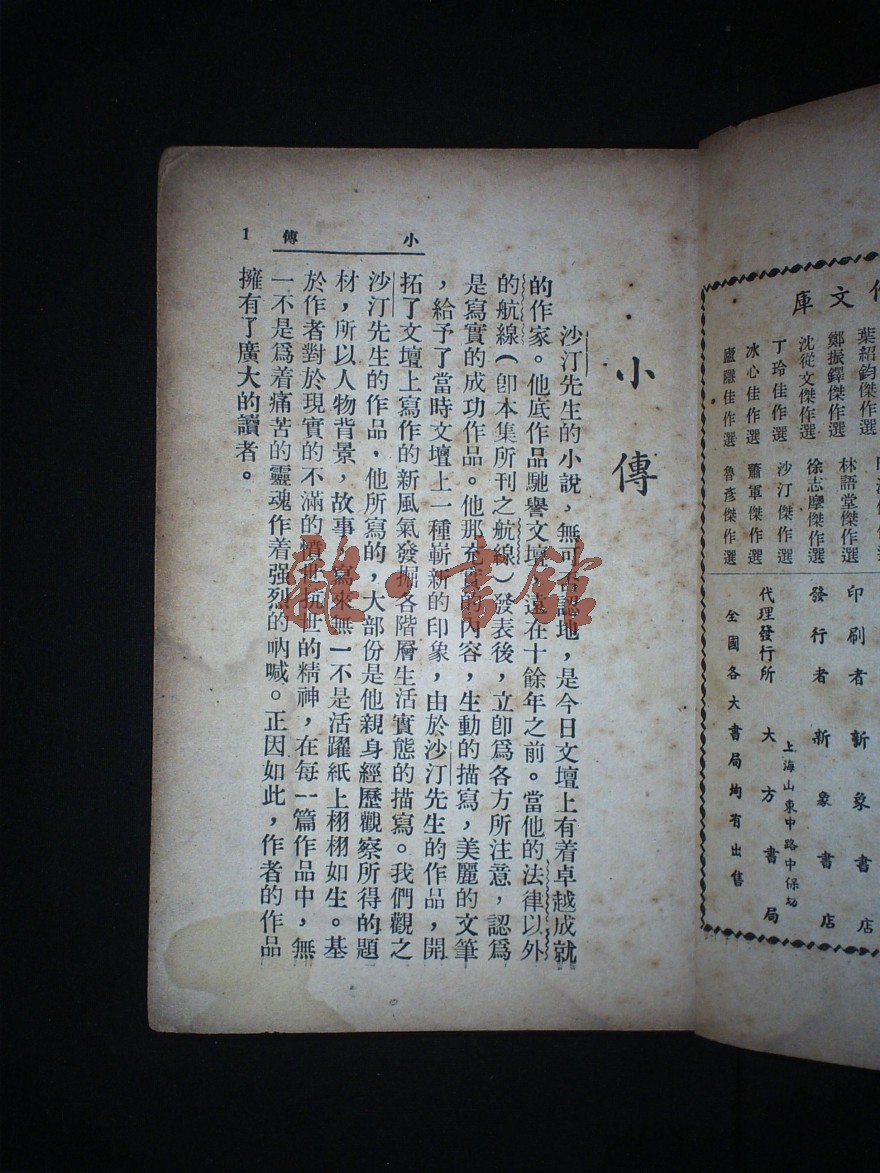 代文庫
葉紹鈞傑作選
鄭振鐸傑作選 林語堂傑作選
沈從文傑作選 徐志摩傑作選
丁玲佳作選 沙汀傑作選
冰心佳作選 蕭軍傑作選
廬隱佳作選 魯彥傑作選
印刷者 新象書店
發行者 新象書店
上海山東中路中保坊
代理發行所 大方書局
全國各大書局均有出售
小傳
沙汀先生的小說，無可否認地，是今日文壇上有着卓越成就
的作家。他底作品馳譽文壇，遠在十餘年之前。當他的法律以外
的航線（卽本集所刊之航線）發表後，立卽爲各方所注意，認爲
是寫實的成功作品。他那充實的內容，生動的描寫，美麗的文筆
，給予了當時文壇上一種嶄新的印象，由於沙汀先生的作品，開
拓了文壇上寫作的新風氣發掘各階層生活實態的描寫。我們觀之
沙汀先生的作品，他所寫的，大部份是他親身經歷觀察所得的題
材，所以人物背景，故事，寫來無一不是活躍紙上栩栩如生。基
於作者對於現實的不滿的憤世抗世的精神，在每一篇作品中，無
一不是爲着痛苦的靈魂作着强烈的吶喊。正因如此，作者的作品
擁有了廣大的讀者。
小傳 1
雜·書館